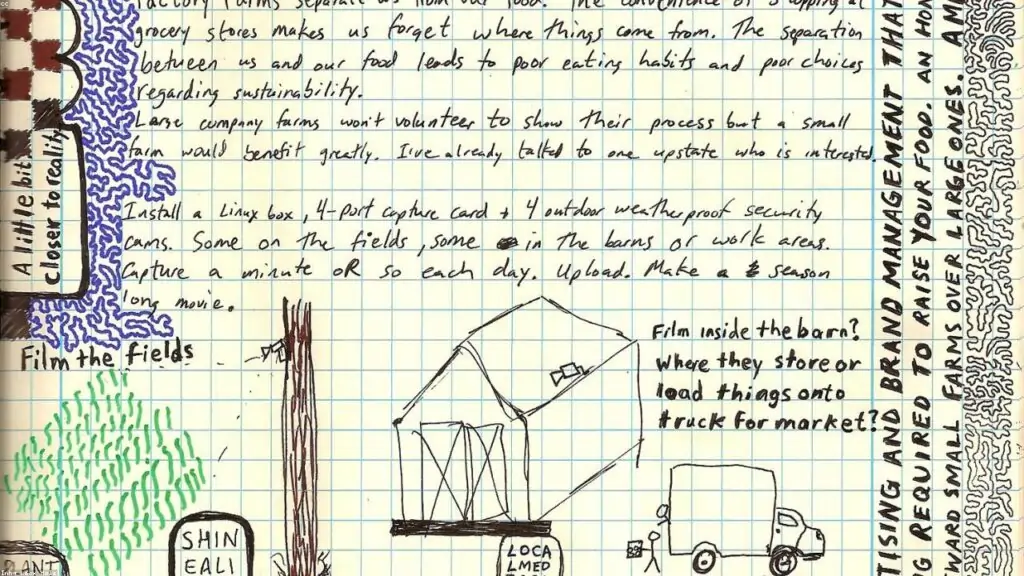 factory farms separate us from our food. The convenience of shopping at
grocery stores makes us forget where things come from. The separation
between us and our food leads to poor eating habits and poor choices
regarding sustainability.
Large company farms won't volunteer to show their process but a small
farm would benefit greatly. I've already talked to one upstate who is interested.
Install a Linux box, 4-port capture card + 4 outdoor weatherproof security
cams. Some on the fields, some in the barns or work areas.
Capture a minute OR so each day. Upload. Make a season
long movie.
A little bit
closer to reality
Film the fields
Film inside the barn?
Where they store or
load things onto
truck for market?
PLANT
SHIN
EALI
LOCA
LMED
TISING AND BRAND MANAGEMENT THAT
G REQUIRED TO RAISE YOUR FOOD. AN HON
WARD SMALL FARMS OVER LARGE ONES. AM